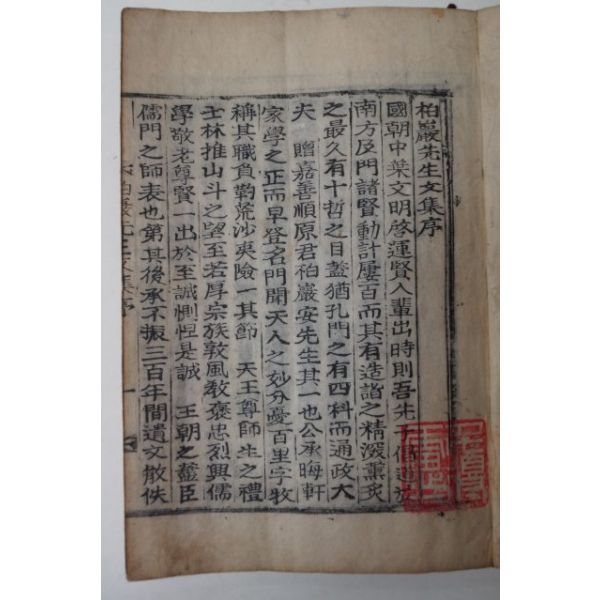 柏巖先生文集序
國朝中葉文明啓運賢人輩出時則吾先
南方及門諸賢動計屢百而其有造詣之精深薰炙
之最久有十哲之目蓋猶孔門之有四科而通政大
夫 贈嘉善順原君柏巖安先生其一也公承晦軒
家學之正而早登名門聞天人之妙分憂百里字牧
稱其職負羁荒沙夷險一其節 天王尊師生之禮
士林推山斗之望至若厚宗族敦風敎褒忠烈興儒
學敬老尊賢一出於至誠惻怛是誠 王朝之藎臣
儒門之師表也第其後承不振三百年間遺文散佚